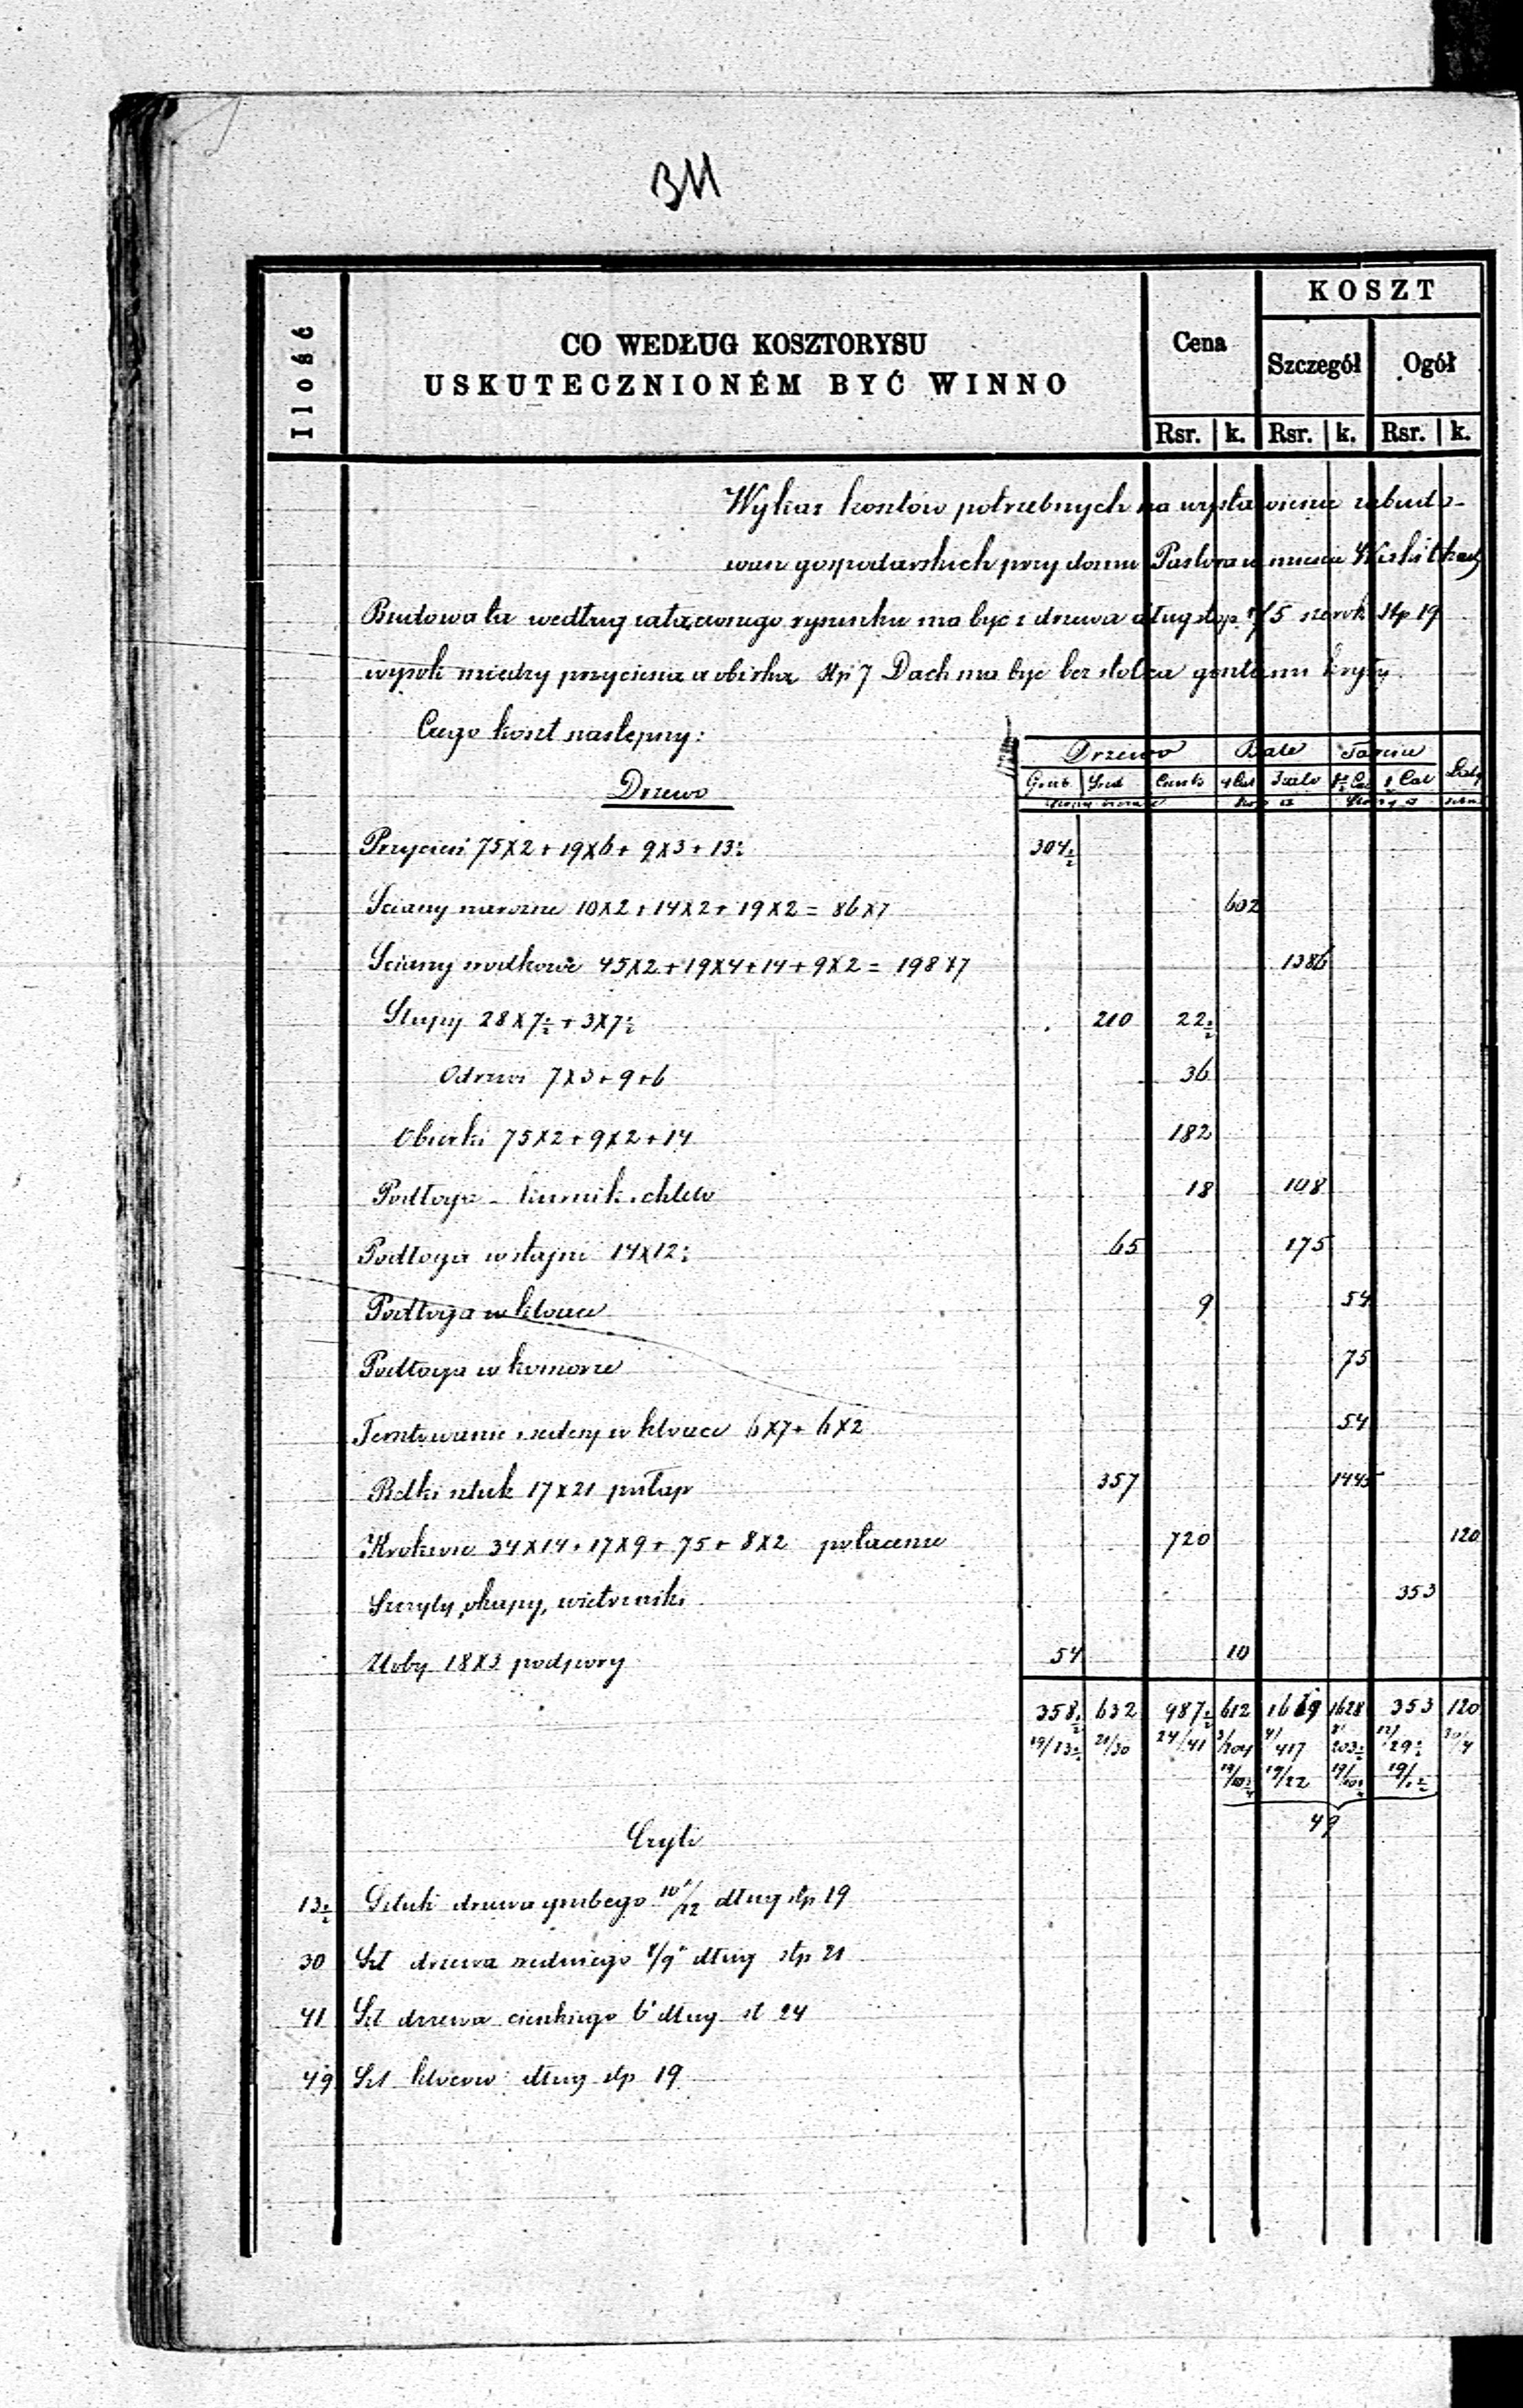 311
Ilość
CO WEDŁUG KOSZTORYSU
USKUTECZNIONÉM BYĆ WINNO
Cena
KOSZT
Szczegół Ogół
Rsr. k. Rsr. k. Rsr. k.
Wykaz kosztów potrzebnych na wystawienie zabudo-
wań gospodarskich przy domu Pastora w mieście Wiskitkach
Budowa ta według załączonego rysunku ma być z drzewa długą stóp 75 szerok. stp 19
wysok między przyciesią a obirką stp 7 Dach ma być bez stolca gontami kryty
Czego koszt następny:
Drzewo Bale Tarcice Łaty
Drzewo Grub Śred Cienk 4 Cal 3 calo 1½ Cal 1 Cal
Przycieś 75X2+19X6+9X3+13½ 304½
Sciany narożne 10X2+14X2+19X2=86X7 602
Sciany srodkowe 45X2+19X4+14+9X2=198X7 1386
Słupy 28X7½+3X7½ 210 22½
Odrzwi 7X3+9+6 36
Obirki 75X2+9X2+14 182
Podłoga kurnik. chlew 18 108
Podłoga w stajni 14X12½ 65 175
Podłoga w kloace 9 54
Podłoga w komorze 75
w kloace 6X7+6X2 54
Belki sztuk 17X21 pułap 357 1445
Krokwie 34X14+17X9+75+8X2 połacenie 720 120
Szczyty, okapy, wietrzniki 353
Żłoby 18X3 podpory 54 10
358½ 632 987½ 612 1669 1628 353 120
19/13½ 21/30 24/41 3/204 4/417 8/203½ 12/29½ 30/4
19/22
49
Czyli
13½ Sztuki drzewa grubego 10/12" długi stp 19
30 Szt drzewa sredniego 8/9" długi stp 21
41 Szt drzewa cienkiego 6" długi st 24
49 Szt kloców długi stp 19